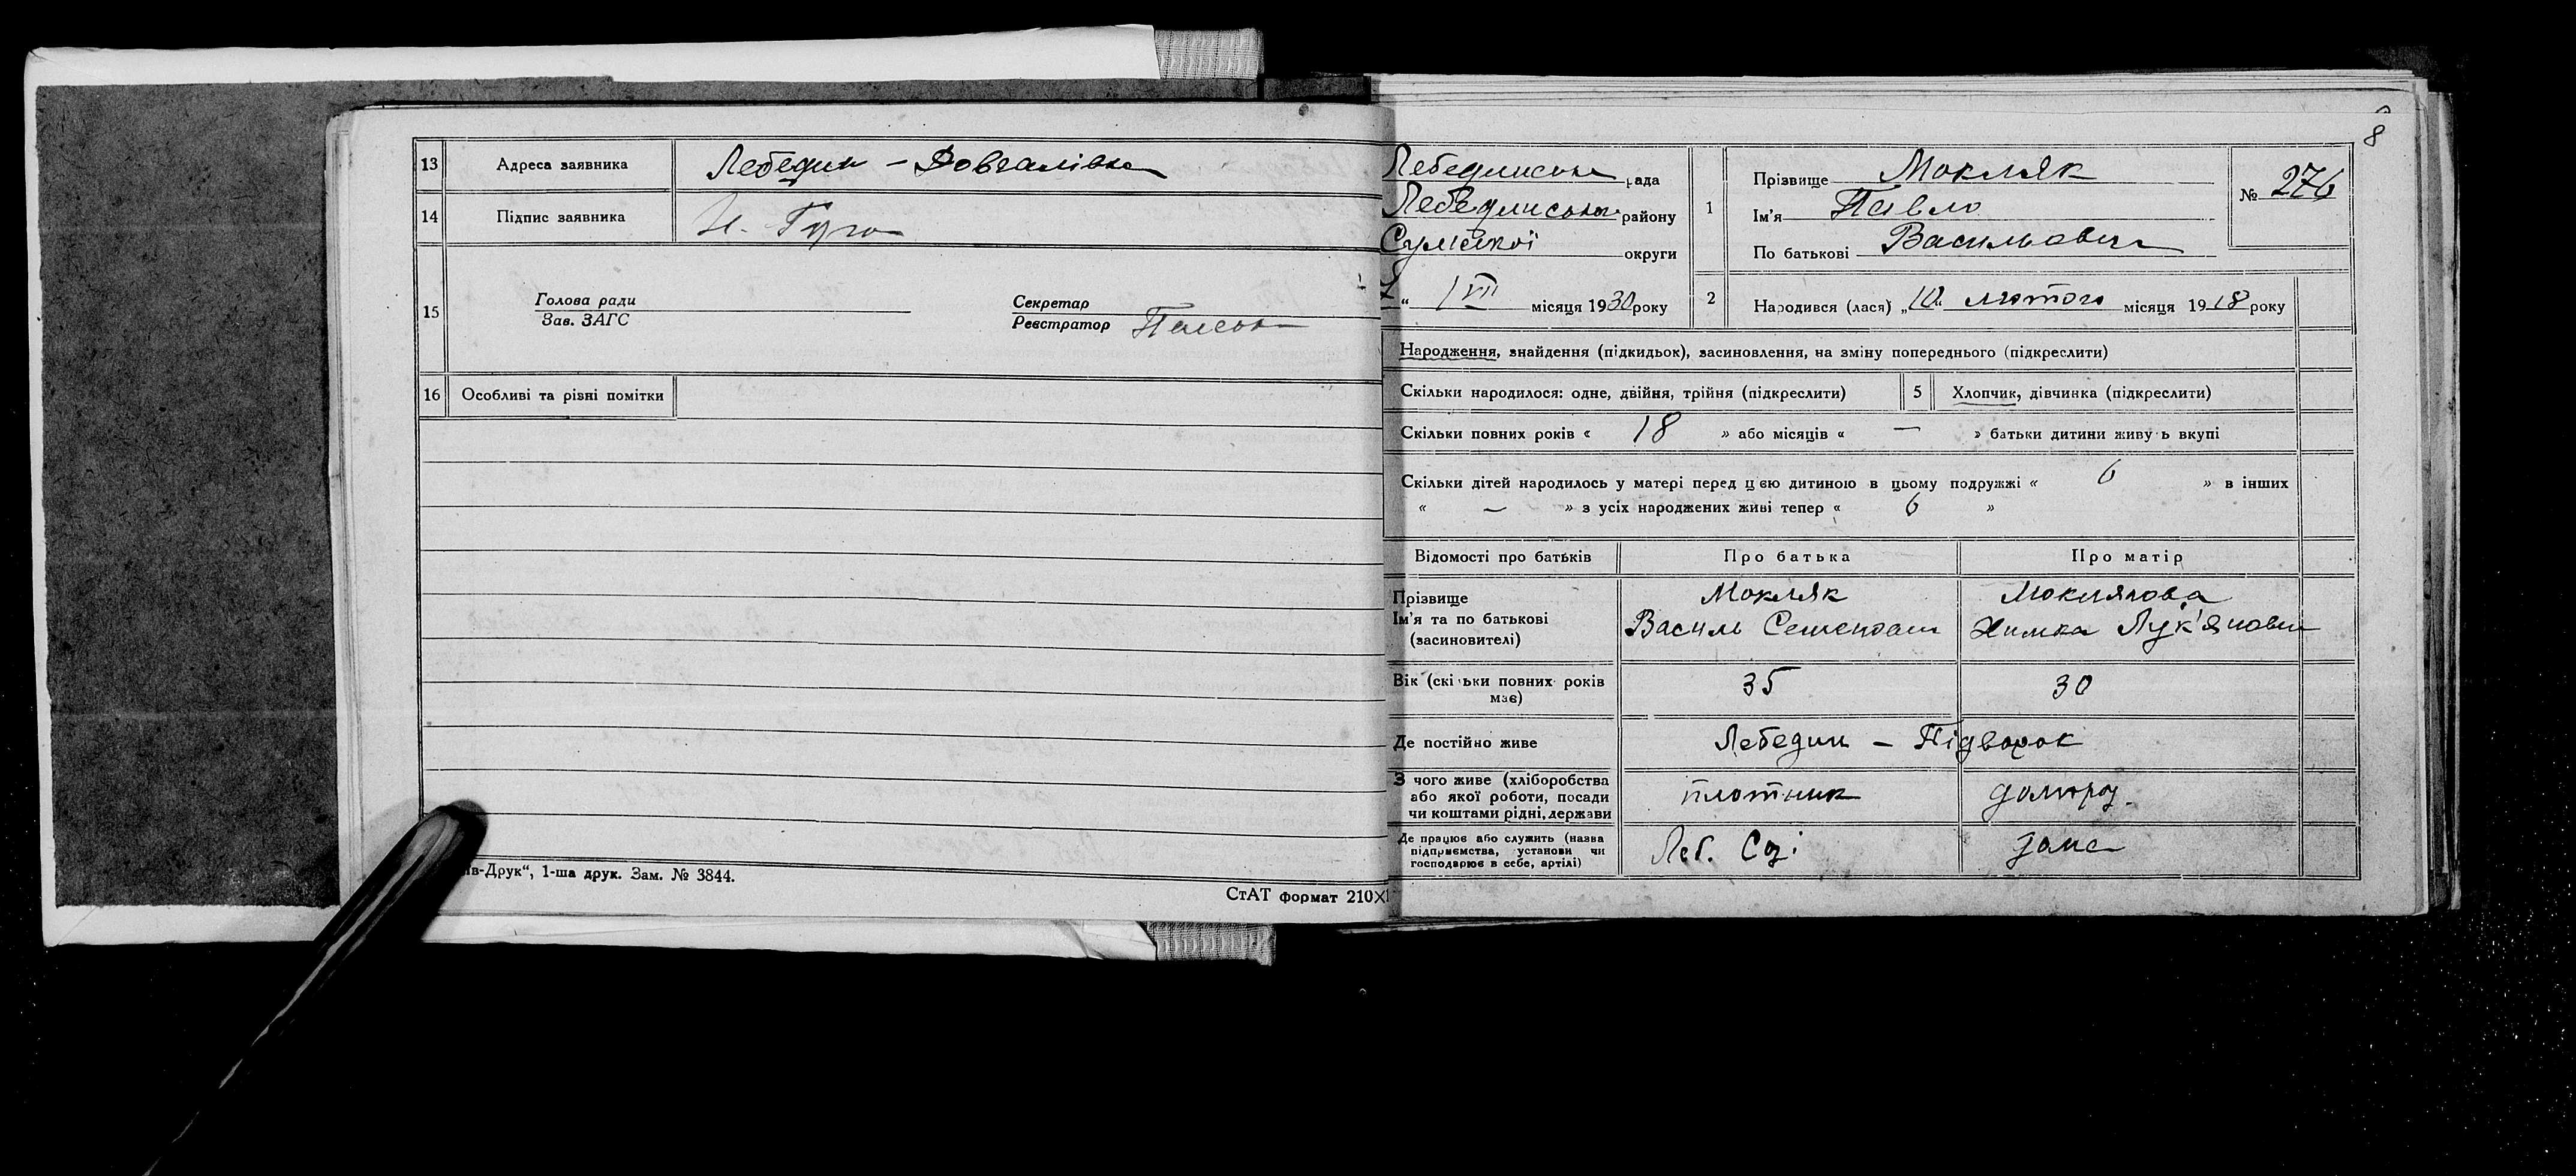 13 Адреса заявника Лебедин – Довгалівка
14 Підпис заявника
15 Голова ради
Зав. ЗАГС
Секретар
Реєстратор
16 Особливі та різні помітки
ів-Друк“, 1-ша друк. Зам. № 3844.
СтАТ формат 210×1
8
Лебединська рада
Лебединського району
Сумської округи
“ 1 VII місяця 1930 року
1 Прізвище Мокляк
Ім'я Павло
По батькові Васильович
№ 276
2 Народився (лася) „10“ лютого місяця 1918 року
Народження, знайдення (підкидьок), засиновлення, на зміну попереднього (підкреслити)
Скільки народилося: одне, двійня, трійня (підкреслити) 5 Хлопчик, дівчинка (підкреслити)
Скільки повних років « 18 » або місяців « — » батьки дитини живуь вкупі
Скільки дітей народилось у матері перед цією дитиною в цьому подружжі « 6 » в інших
« — » з усіх народжених живі тепер « 6 »
Відомості про батьків Про батька Про матір
Прізвище Мокляк Моклякова
Ім'я та по батькові Василь Семенович Химка Лук'яновн
(засиновителі)
Вік (скільки повних років 35 30
має)
Де постійно живе Лебедин – Підворок
З чого живе (хліборобства плотник
або якої роботи, посади
чи коштами рідні, держави
Де працює або служить (назва Леб.
підприємства, установи чи
господарює в себе, артілі)